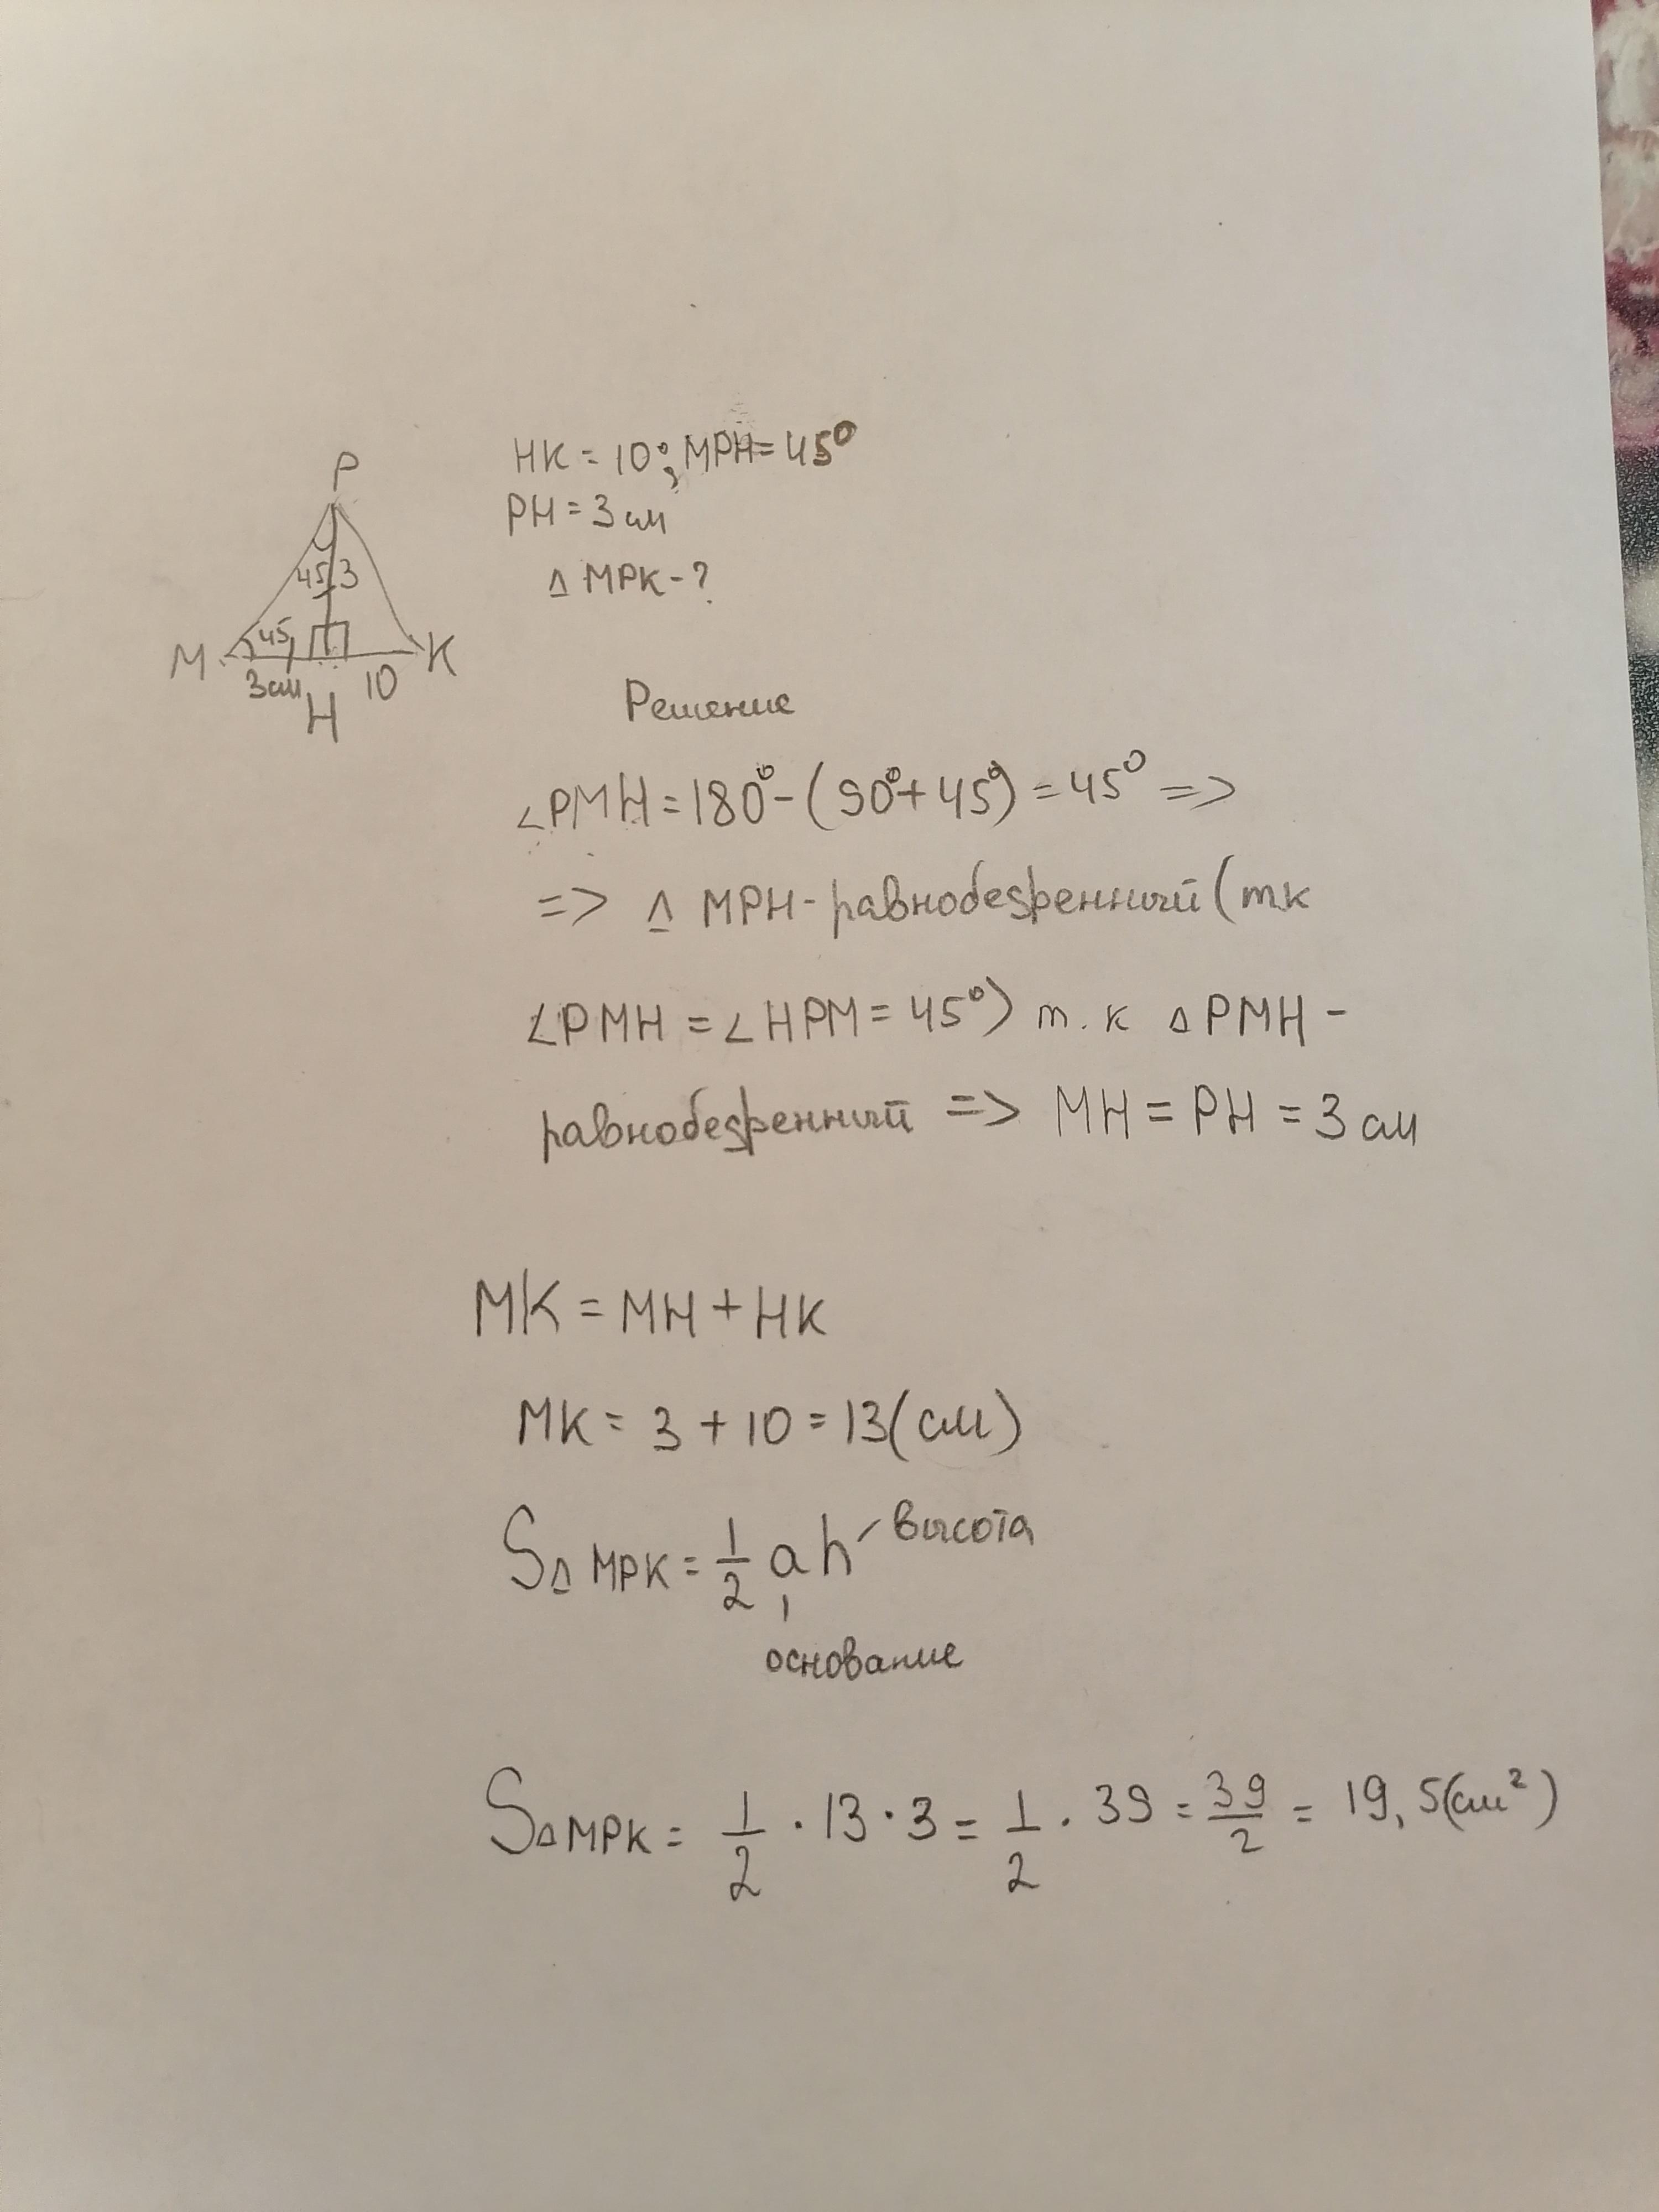 HK = 10°; MPH = 45°
PH = 3 см
Δ MPK - ?
P
45 3
M 45 K
3см H 10
Решение
∠PMH = 180° - (90° + 45°) = 45° =>
=> Δ MPH - равнобедренный (т.к
∠PMH = ∠HPM = 45°) т.к Δ PMH -
равнобедренный => MH = PH = 3 см
MK = MH + HK
MK = 3 + 10 = 13 (см)
SΔ MPK = 1/2 a h - высота
основание
SΔ MPK = 1/2 · 13 · 3 = 1/2 · 39 = 39/2 = 19,5 (см²)